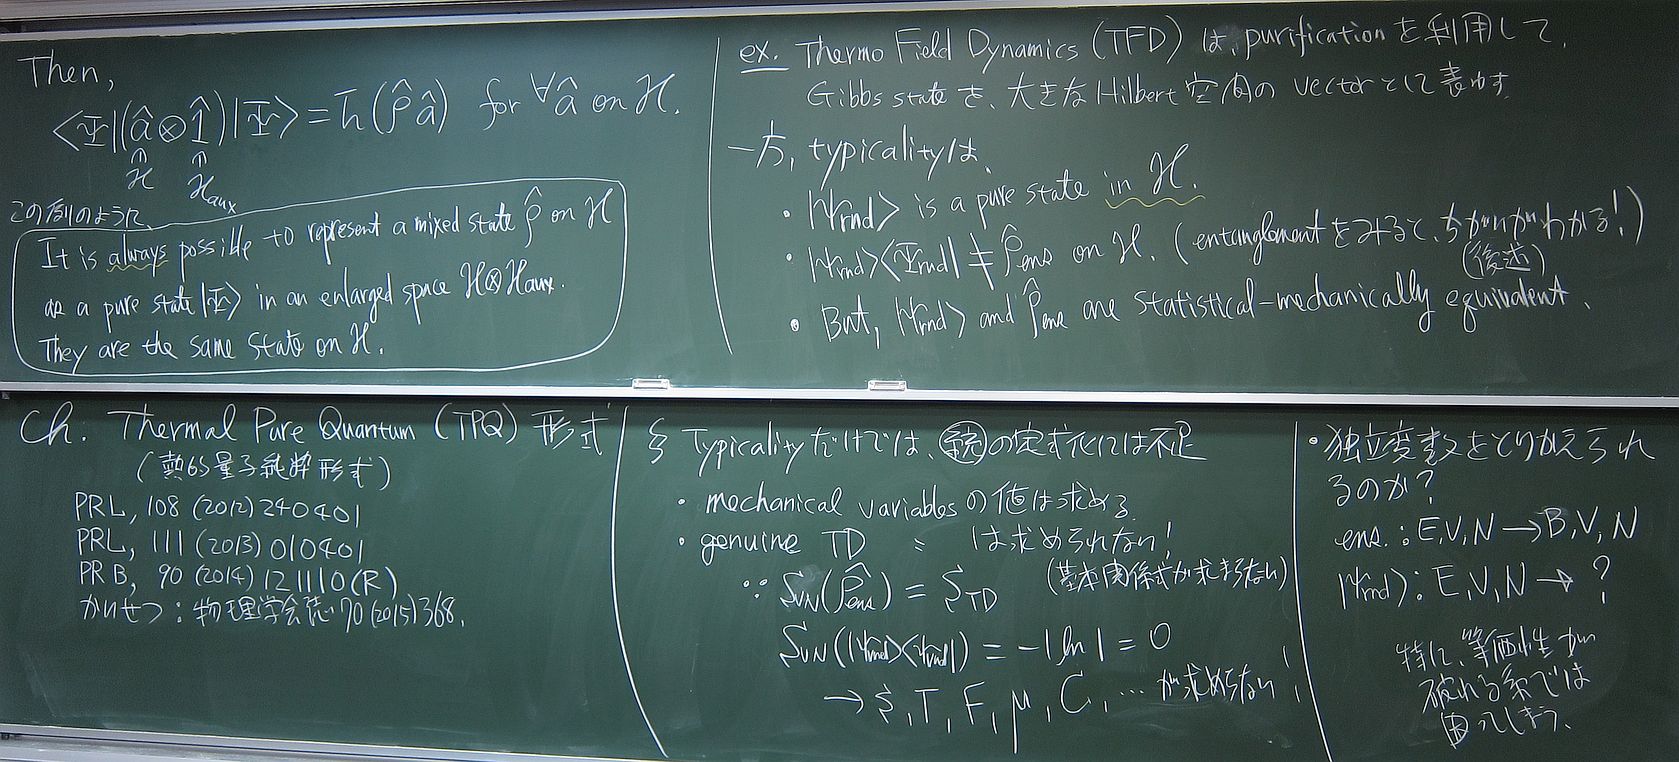 Then,
⟨Ψ|(â⊗1̂)|Ψ⟩ = Tr(ρ̂â) for ∀â on ℋ.
⇑ ⇑
ℋ ℋaux
この例のように、
It is always possible to represent a mixed state ρ̂ on ℋ
as a pure state |Ψ⟩ in an enlarged space ℋ⊗ℋaux.
They are the same state on ℋ.
ex. Thermo Field Dynamics (TFD) は, purification を利用して,
Gibbs state を、大きな Hilbert 空間の vector として表わす
一方, typicality は、
・|ψrnd⟩ is a pure state in ℋ.
・|ψrnd⟩⟨ψrnd| ≠ ρ̂ens on ℋ. (entanglement をみると、ちがいがわかる!)
(後述)
・But, |ψrnd⟩ and ρ̂ens are statistical-mechanically equivalent.
Ch. Thermal Pure Quantum (TPQ) 形式
(熱的量子純粋形式)
PRL, 108 (2012) 240401
PRL, 111 (2013) 010401
PRB, 90 (2014) 121110(R)
かいせつ : 物理学会誌 70 (2015) 368.
§ Typicality だけでは、統の定式化には不足
・mechanical variables の値は求める
・genuine TD 〃 は求められない!
(基本関係式が求まらない)
∵ SvN(ρ̂ens) = STD
SvN(|ψrnd⟩⟨ψrnd|) = -1 ln 1 = 0
→ S, T, F, μ, C, … が求めらない!
・独立変数をとりかえられ
るのか?
ens. : E,V,N → β,V,N
|ψrnd⟩ : E,V,N → ?
特に、等価性が
破れる系では
困ってしまう、